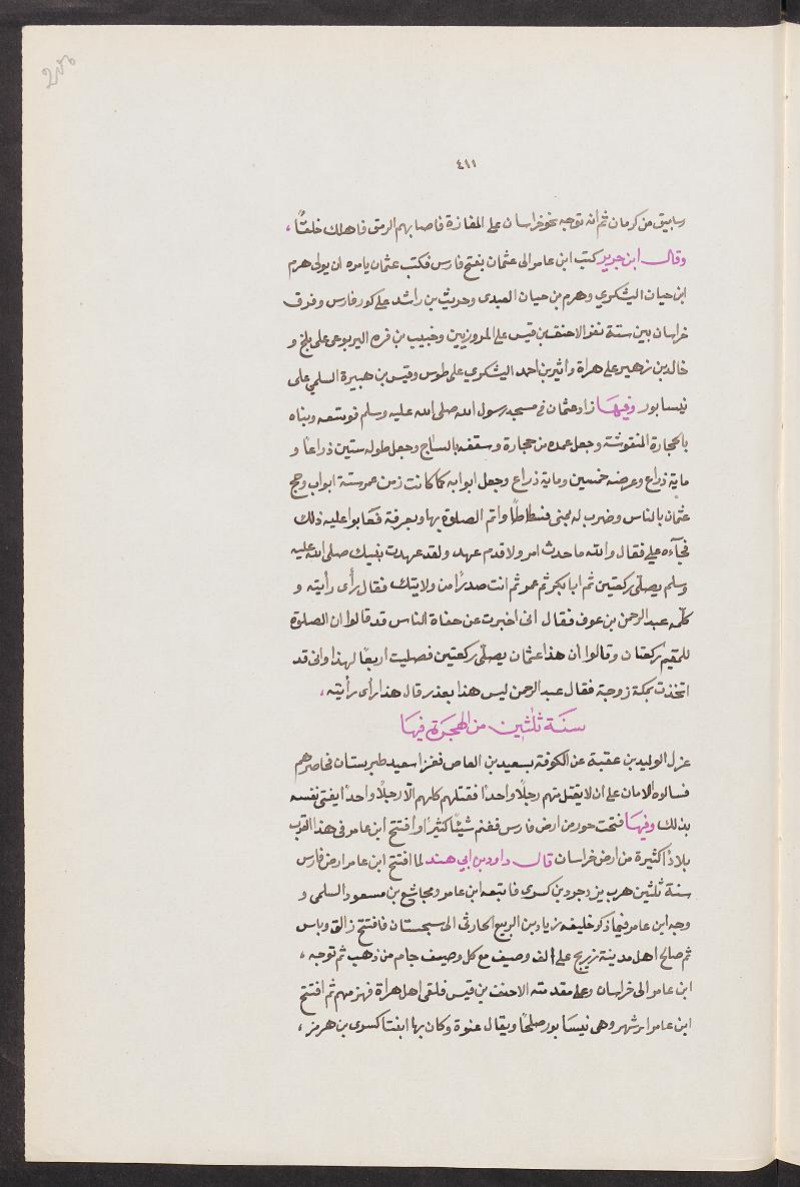 ٤١١
رسابيق من كرمان ثم انه توجه نحو خراسان على المفازة فاصابهم الرمق فاهلك خلقًا،
وقال ابن جرير كتب ابن عامر الى عثمان بفتح فارس فكتب عثمان يامره ان يولى هرم
ابن حيان اليشكري وهرم بن حيان العبدى وحريث بن راشد على كور فارس وفرق
خراسان بين ستة نفر الاحنف بن قيس على المروزيين وخبيب بن قره اليربوعى على بلخ و
خالد بن زهير على هراة واثير بن احمد اليشكري على طوس وقيس بن هبيرة السلمي على
نيسابور وفيها زاد عثمان في مسجد رسول الله صلى الله عليه وسلم فوسّعه وبناه
بالحجارة المنقوشة وجعل عمده من حجارة وسقفه بالساج وجعل طوله ستين ذراعًا و
ماية ذراع وعرضه خمسين وماية ذراع وجعل ابوابه كما كانت زمن عمر ستة ابواب وحج
عثمان بالناس وضرب له بمنى فسطاطًا واتم الصلوة بها وبعرفة فعابوا عليه ذلك
فجآءه على فقال والله ما حدث امر ولا قدم عهد ولقد عهدت نبيك صلى الله عليه
وسلم يصلّى ركعتين ثم ابا بكر ثم عمر ثم انت صدرًا من ولايتك فقال رأى رأيته و
كلّمه عبد الرحمن بن عوف فقال انى اخبرت عن حفاة الناس قد قالوا ان الصلوة
للمقيم ركعتان وقالوا ان هذا عثمان يصلّى ركعتين فصليت اربعًا لهذا وانى قد
اتخذت بمكة زوجة فقال عبد الرحمن ليس هذا بعذر قال هذا رأى رأيته،
سنة ثلثين من الهجرة فيها
عزل الوليد بن عقبة عن الكوفة بسعيد بن العاص فغزا سعيد طبرستان فحاصرهم
فسالوه الامان على ان لا يقتل منهم رجلًا واحدًا فقتلهم كلهم الّا رجلًا واحدًا يفتى نفسه
بذلك وفيها فتحت جور من ارض فارس فغنم شيئًا كثيرًا وافتتح ابن عامر فى هذا القرب
بلادًا كثيرة من ارض خراسان قال داود بن ابي هند لما افتتح ابن عامر ارض فارس
سنة ثلثين هرب يزدجرد بن كسرى فاتبعه ابن عامر ومجاشع بن مسعود السلمى و
وجه ابن عامر فيما ذكر خليفه زياد بن الربيع الحارثى الى سجستان فافتتح زالق وباس
ثم صالح اهل مدينة زريج على الف وصيف مع كل وصيف جام من ذهب ثم توجه،
ابن عامر الى خراسان وعلى مقدمته الاحنف بن قيس فلقى اهل هراة فهزمهم ثم افتتح
ابن عامر ابرشهر وهى نيسابور صلحًا ويقال عنوة وكان بها ابنتا كسرى بن هرمز،